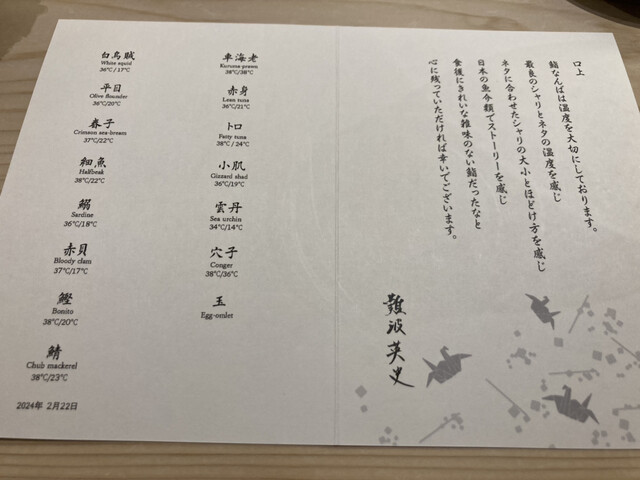 白烏賊
White squid
36℃/17℃
平目
Olive flounder
36℃/20℃
春子
Crimson sea-bream
37℃/22℃
細魚
Halfbeak
38℃/22℃
鰯
Sardine
36℃/18℃
赤貝
Bloody clam
37℃/17℃
鰹
Bonito
38℃/20℃
鯖
Chub mackerel
38℃/23℃
2024年 2月22日
車海老
Kuruma-prawn
38℃/38℃
赤身
Lean tuna
36℃/21℃
トロ
Fatty tuna
38℃/24℃
小肌
Gizzard shad
36℃/19℃
雲丹
Sea urchin
34℃/14℃
穴子
Conger
38℃/36℃
玉
Egg-omlet
口上
鮨なんばは温度を大切にしております。
最良のシャリとネタの温度を感じ
ネタに合わせたシャリの大小とほどけ方を感じ
日本の魚介類でストーリーを感じ
食後にきれいな雑味のない鮨だったなと
心に残っていただければ幸いでございます。
難波英史